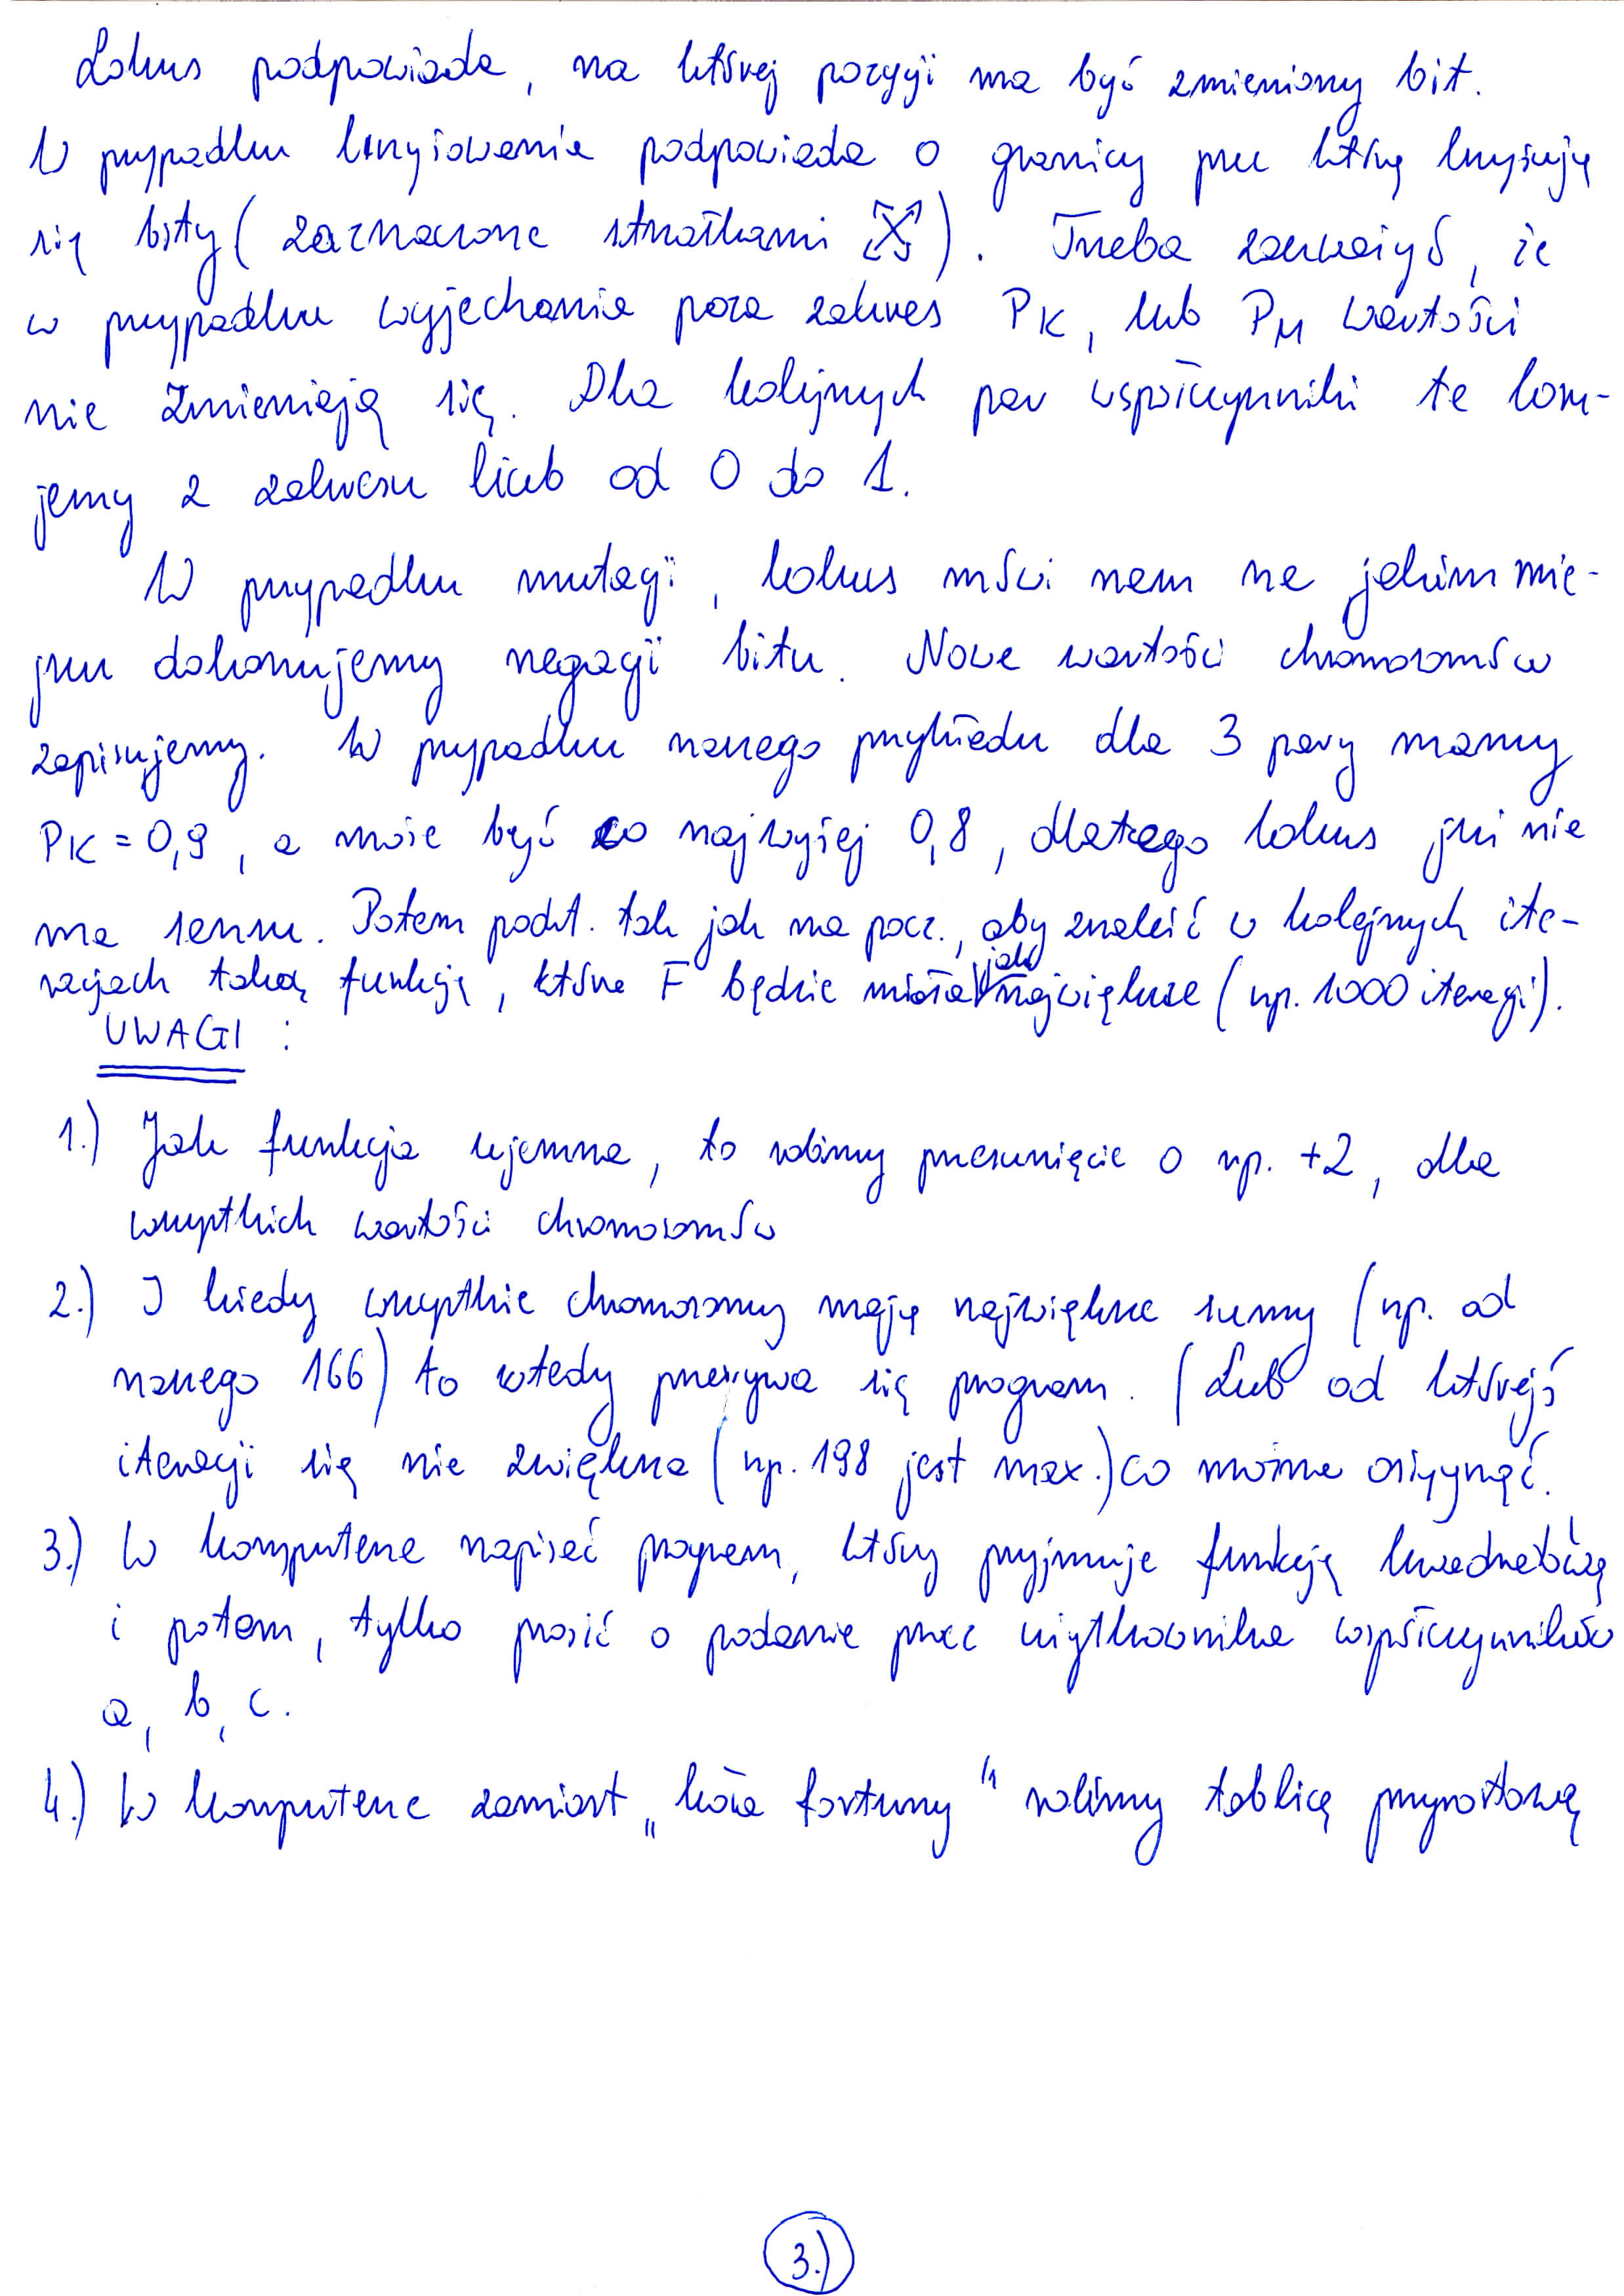 Lokus podpowiada, na której pozycji ma być zmieniony bit.
W przypadku krzyżowania podpowiada o granicy przez którą krzyżują
się bity (zaznaczone strzałkami). Trzeba zauważyć, że
w przypadku wyjechania poza zakres PK, lub PM wartości
nie zmieniają się. Dla kolejnych par współczynniki te losu-
jemy z zakresu liczb od 0 do 1.
W przypadku mutacji, lokus mówi nam na jakim miej-
scu dokonujemy negacji bitu. Nowe wartości chromosomów
zapisujemy. W przypadku naszego przykładu dla 3 pary mamy
PK = 0,9, a może być co najwyżej 0,8, dlatego lokus już nie
ma sensu. Potem podst. tak jak na pocz., aby znaleźć w kolejnych ite-
racjach taką funkcję, która F będzie miała jak największe (np. 1000 iteracji).
UWAGI :
1.) Jak funkcja ujemna, to robimy przesunięcie o np. +2, dla
wszystkich wartości chromosomów
2.) I kiedy wszystkie chromosomy mają największe sumy (np. od
naszego 166) to wtedy przerywa się program. (Lub od którejś
iteracji się nie zwiększa (np. 198 jest max.) co można osiągnąć.
3.) W komputerze napisać program, który przyjmuje funkcję kwadratową
i potem, tylko prosić o podanie przez użytkownika współczynników
a, b, c.
4.) W komputerze zamiast „koła fortuny" robimy tablicę przyrostową
3.)